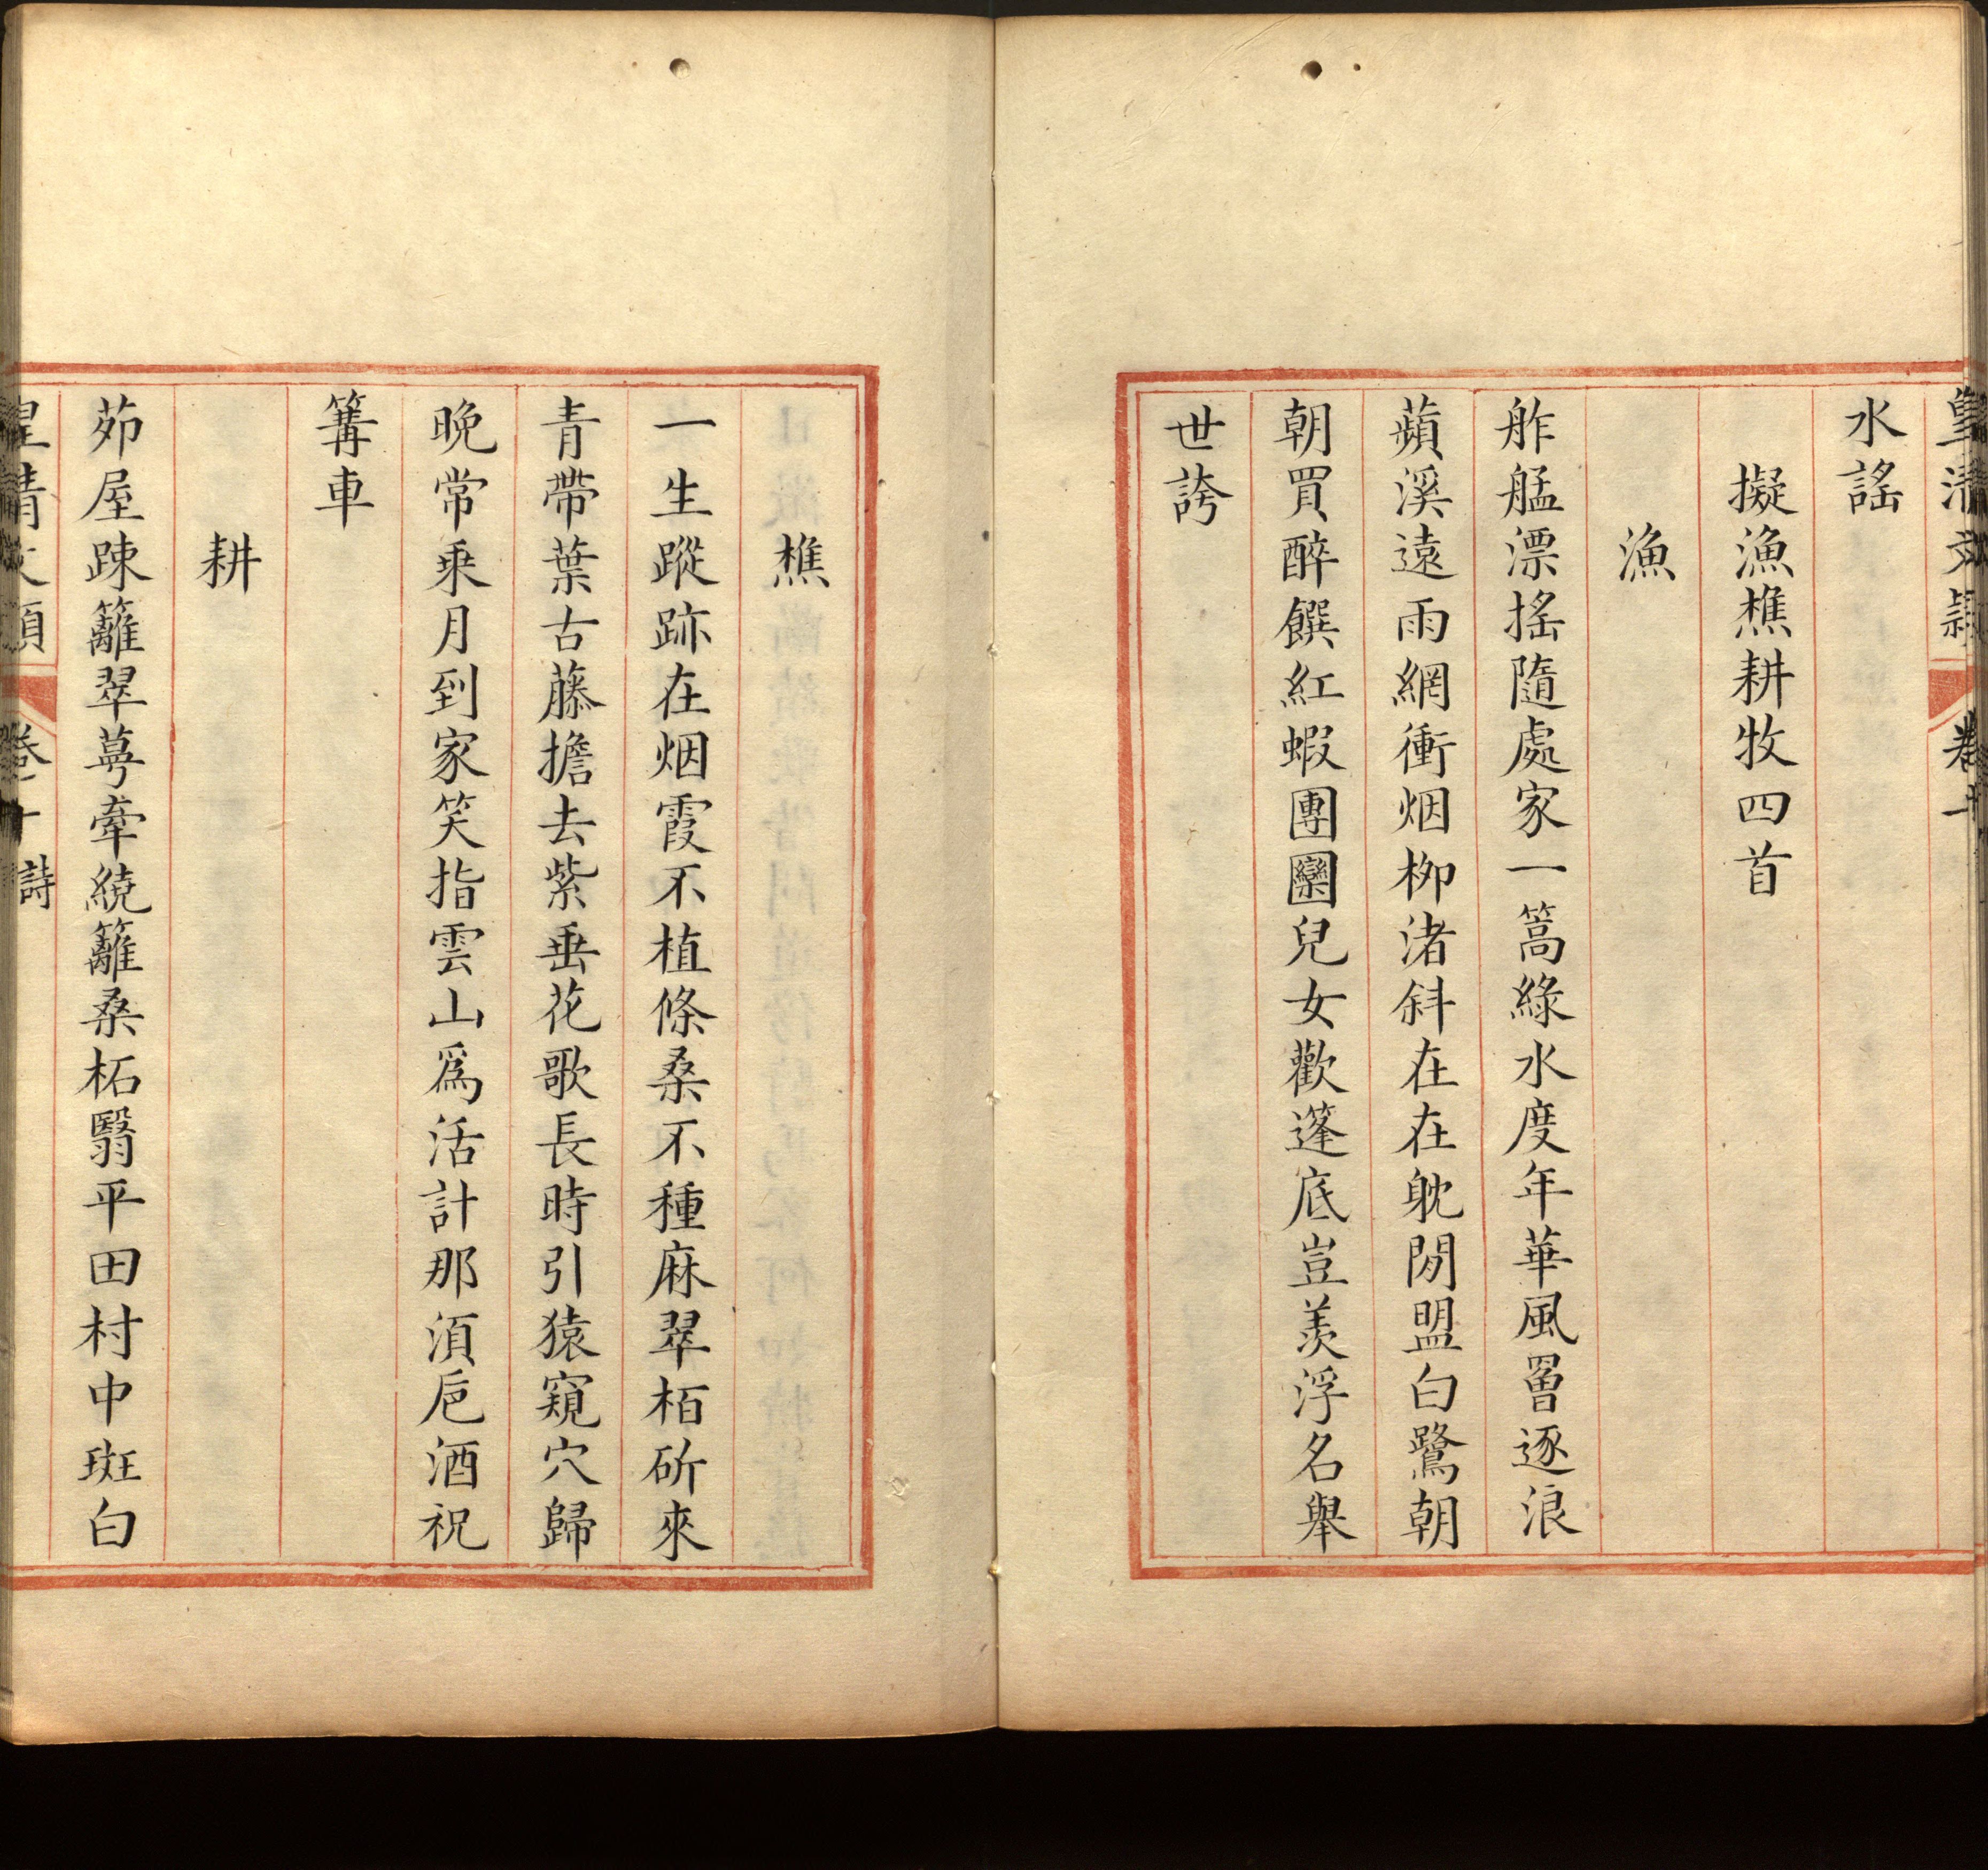 皇清文穎 卷十
水謠
擬漁樵耕牧四首
漁
舴艋漂搖隨處家一篙綠水度年華風罾逐浪
蘋溪遠雨網衝烟柳渚斜在在躭閒盟白鷺朝
朝買醉饌紅蝦團圞兒女歡蓬底豈羨浮名舉
世誇
樵
一生蹤跡在烟霞不植條桑不種麻翠栢斫來
青帶葉古藤擔去紫垂花歌長時引猿窺穴歸
晚常乘月到家笑指雲山爲活計那須巵酒祝
篝車
耕
茆屋疎籬翠蕚牽繞籬桑柘翳平田村中斑白
皇清文穎 卷十 詩